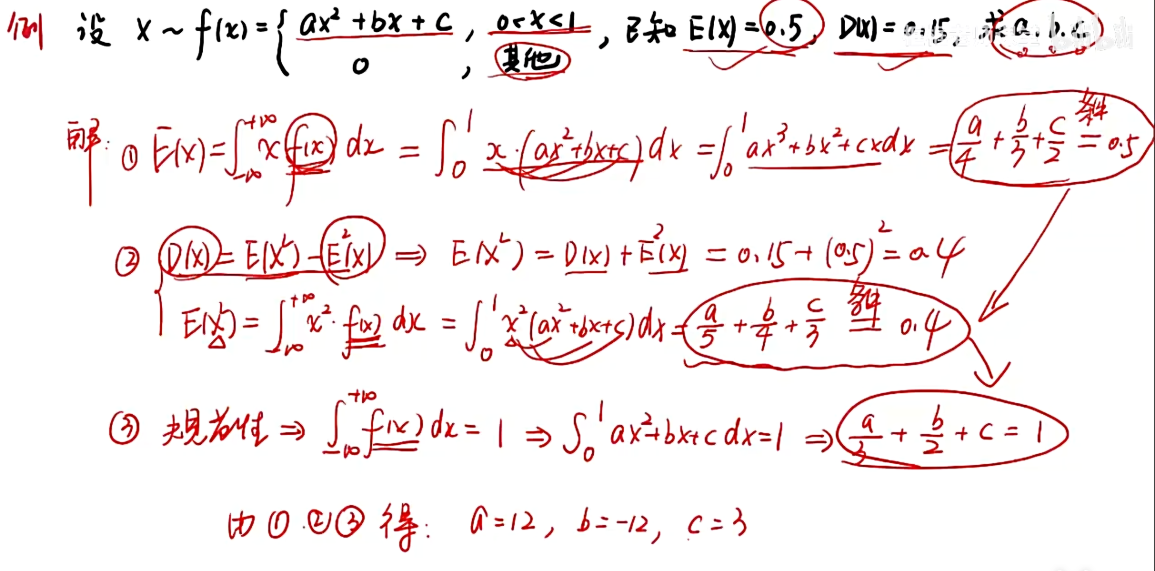 例 设 X ~ f(x) = { ax² + bx + c , 0<x<1 , 已知 E(X) = 0.5, D(X) = 0.15, 求 a, b, c
0 , 其他
解: ① E(x) = ∫_{-∞}^{+∞} x f(x) dx = ∫_0^1 x·(ax²+bx+c) dx = ∫_0^1 ax³+bx²+cx dx = a/4 + b/3 + c/2 条件= 0.5
② { D(X) = E(X²) - E²(X) ⇒ E(X²) = D(X) + E²(X) = 0.15 + (0.5)² = 0.4
E(X²) = ∫_{-∞}^{+∞} x²·f(x) dx = ∫_0^1 x²(ax²+bx+c) dx = a/5 + b/4 + c/3 条件= 0.4
③ 规范性 ⇒ ∫_{-∞}^{+∞} f(x) dx = 1 ⇒ ∫_0^1 ax²+bx+c dx = 1 ⇒ a/3 + b/2 + c = 1
由 ① ② ③ 得: a = 12, b = -12, c = 3